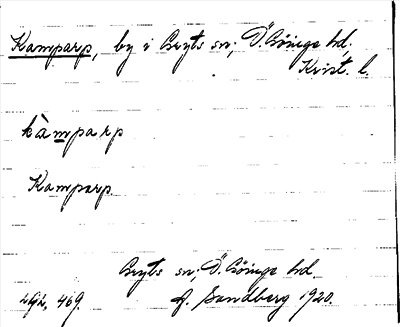 Kamparp, by i Gryts sn; Ö. Göinge hd,
Krist. l.
kàmparp
Kamparp.
Gryts sn; Ö. Göinge hd.
469. J. Sandberg 1920.